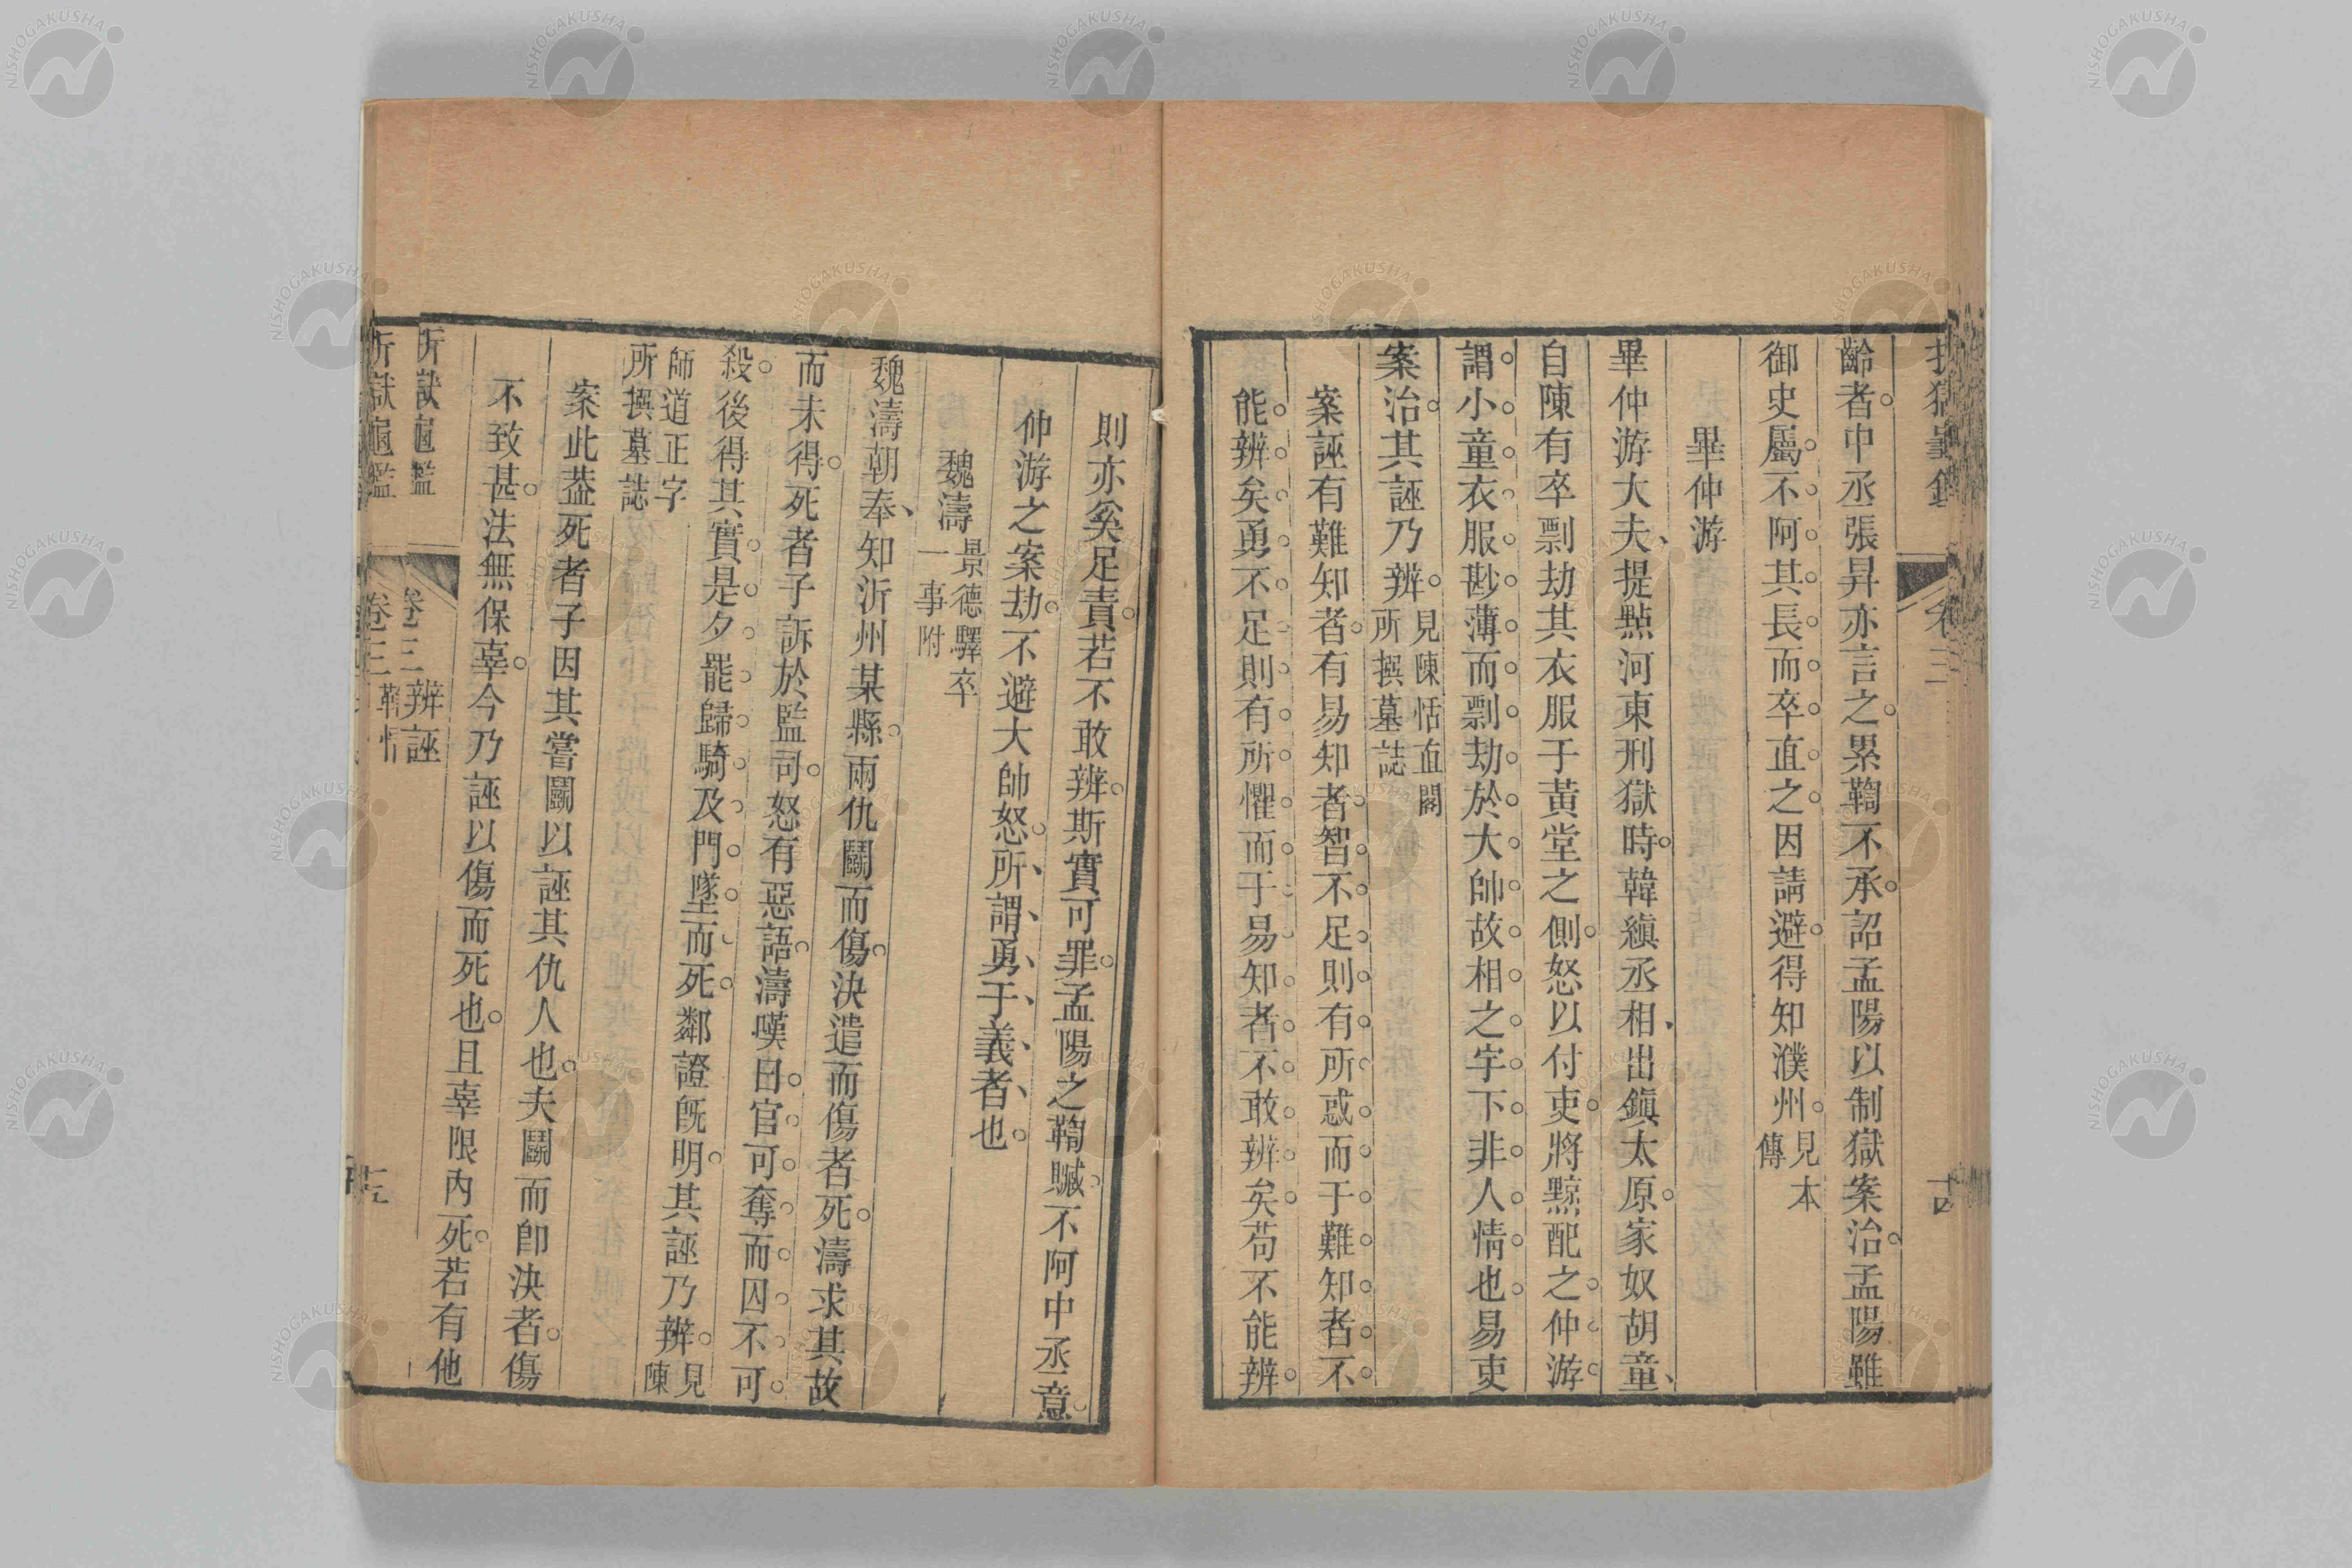 折獄龜鑑
卷三
十四
齡者。中丞張昇亦言之。累鞫不承。詔孟陽以制獄案治。孟陽雖
御史屬。不。阿。其。長。而。卒。直。之。因請避。得知濮州。見本傳
畢仲游
畢仲游大夫、提點河東刑獄時。韓縝丞相、出鎭太原。家奴胡童、
自陳有卒剽劫其衣服于黃堂之側。怒以付吏。將黥配之。仲。游。
謂。小。童。衣。服。尠。薄。而。剽。劫。於。大。帥。故。相。之。宇。下。非。人。情。也。易吏
案治。其誣乃辨。見陳恬直閣所撰墓誌
案誣有難知者。有易知者。智。不。足。則。有。所。惑。而。于。難。知。者。不。
能。辨。矣。勇。不。足。則。有。所。懼。而。于。易。知。者。不。敢。辨。矣。苟不能辨。
則亦奚足責。若不敢辨。斯實可罪。孟陽之鞫贓。不阿中丞意。
仲游之案劫。不避大帥怒。所、謂、勇、于、義、者、也。
魏濤 景德驛卒一事附
魏濤朝奉、知沂州某縣。兩仇鬭而傷。決遣而傷者死。濤求其故
而未得。死者子訴於監司。怒有惡語。濤嘆曰。官。可。奪。而。囚。不。可。
殺。後得其實。是。夕。罷。歸。騎。及。門。墜。而。死。鄰證旣明。其誣乃辨。見陳
師道正字所撰墓誌
案此葢死者子因其嘗鬭以誣其仇人也。夫鬭而卽決者。傷
不致甚。法無保辜。今乃誣以傷而死也。且辜限內死。若有他
折獄龜鑑
卷三 辨誣
十五
折獄龜鑑
卷三